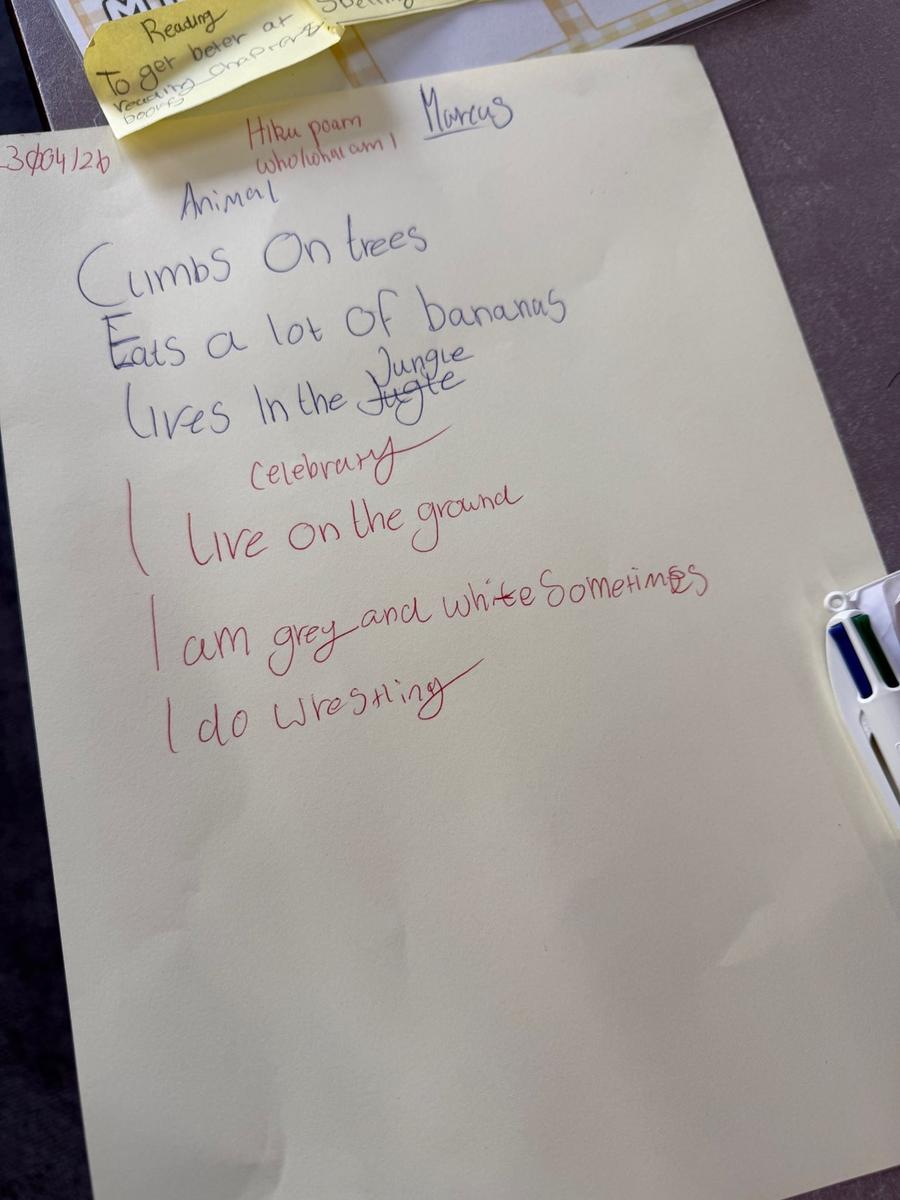 Reading
To get beter at
reading chapters
books
Hiku poam
who/what am I
Marcus
Animal
Climbs On trees
Eats a lot Of bananas
Lives In the Jugle Jungle
Celebraty
I live on the ground
I am grey and white Sometimes
I do wrestling